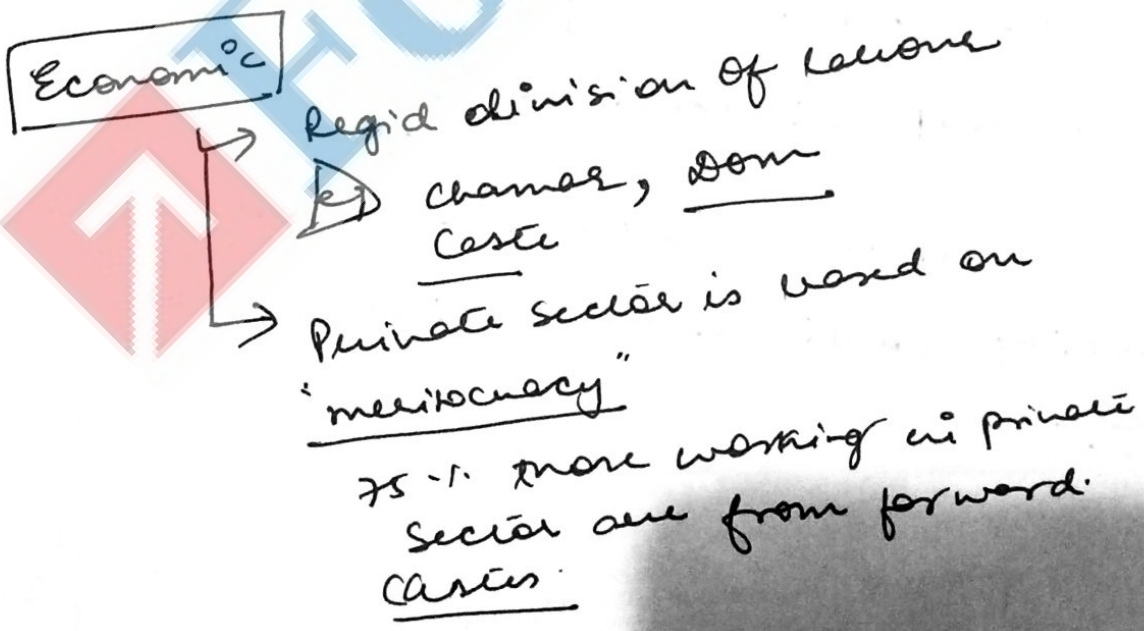 Economic
Regid division of labour
eg chamar, Dom
Caste
Private sector is based on
"meritocracy"
75% those working in private
sector are from forward
castes.